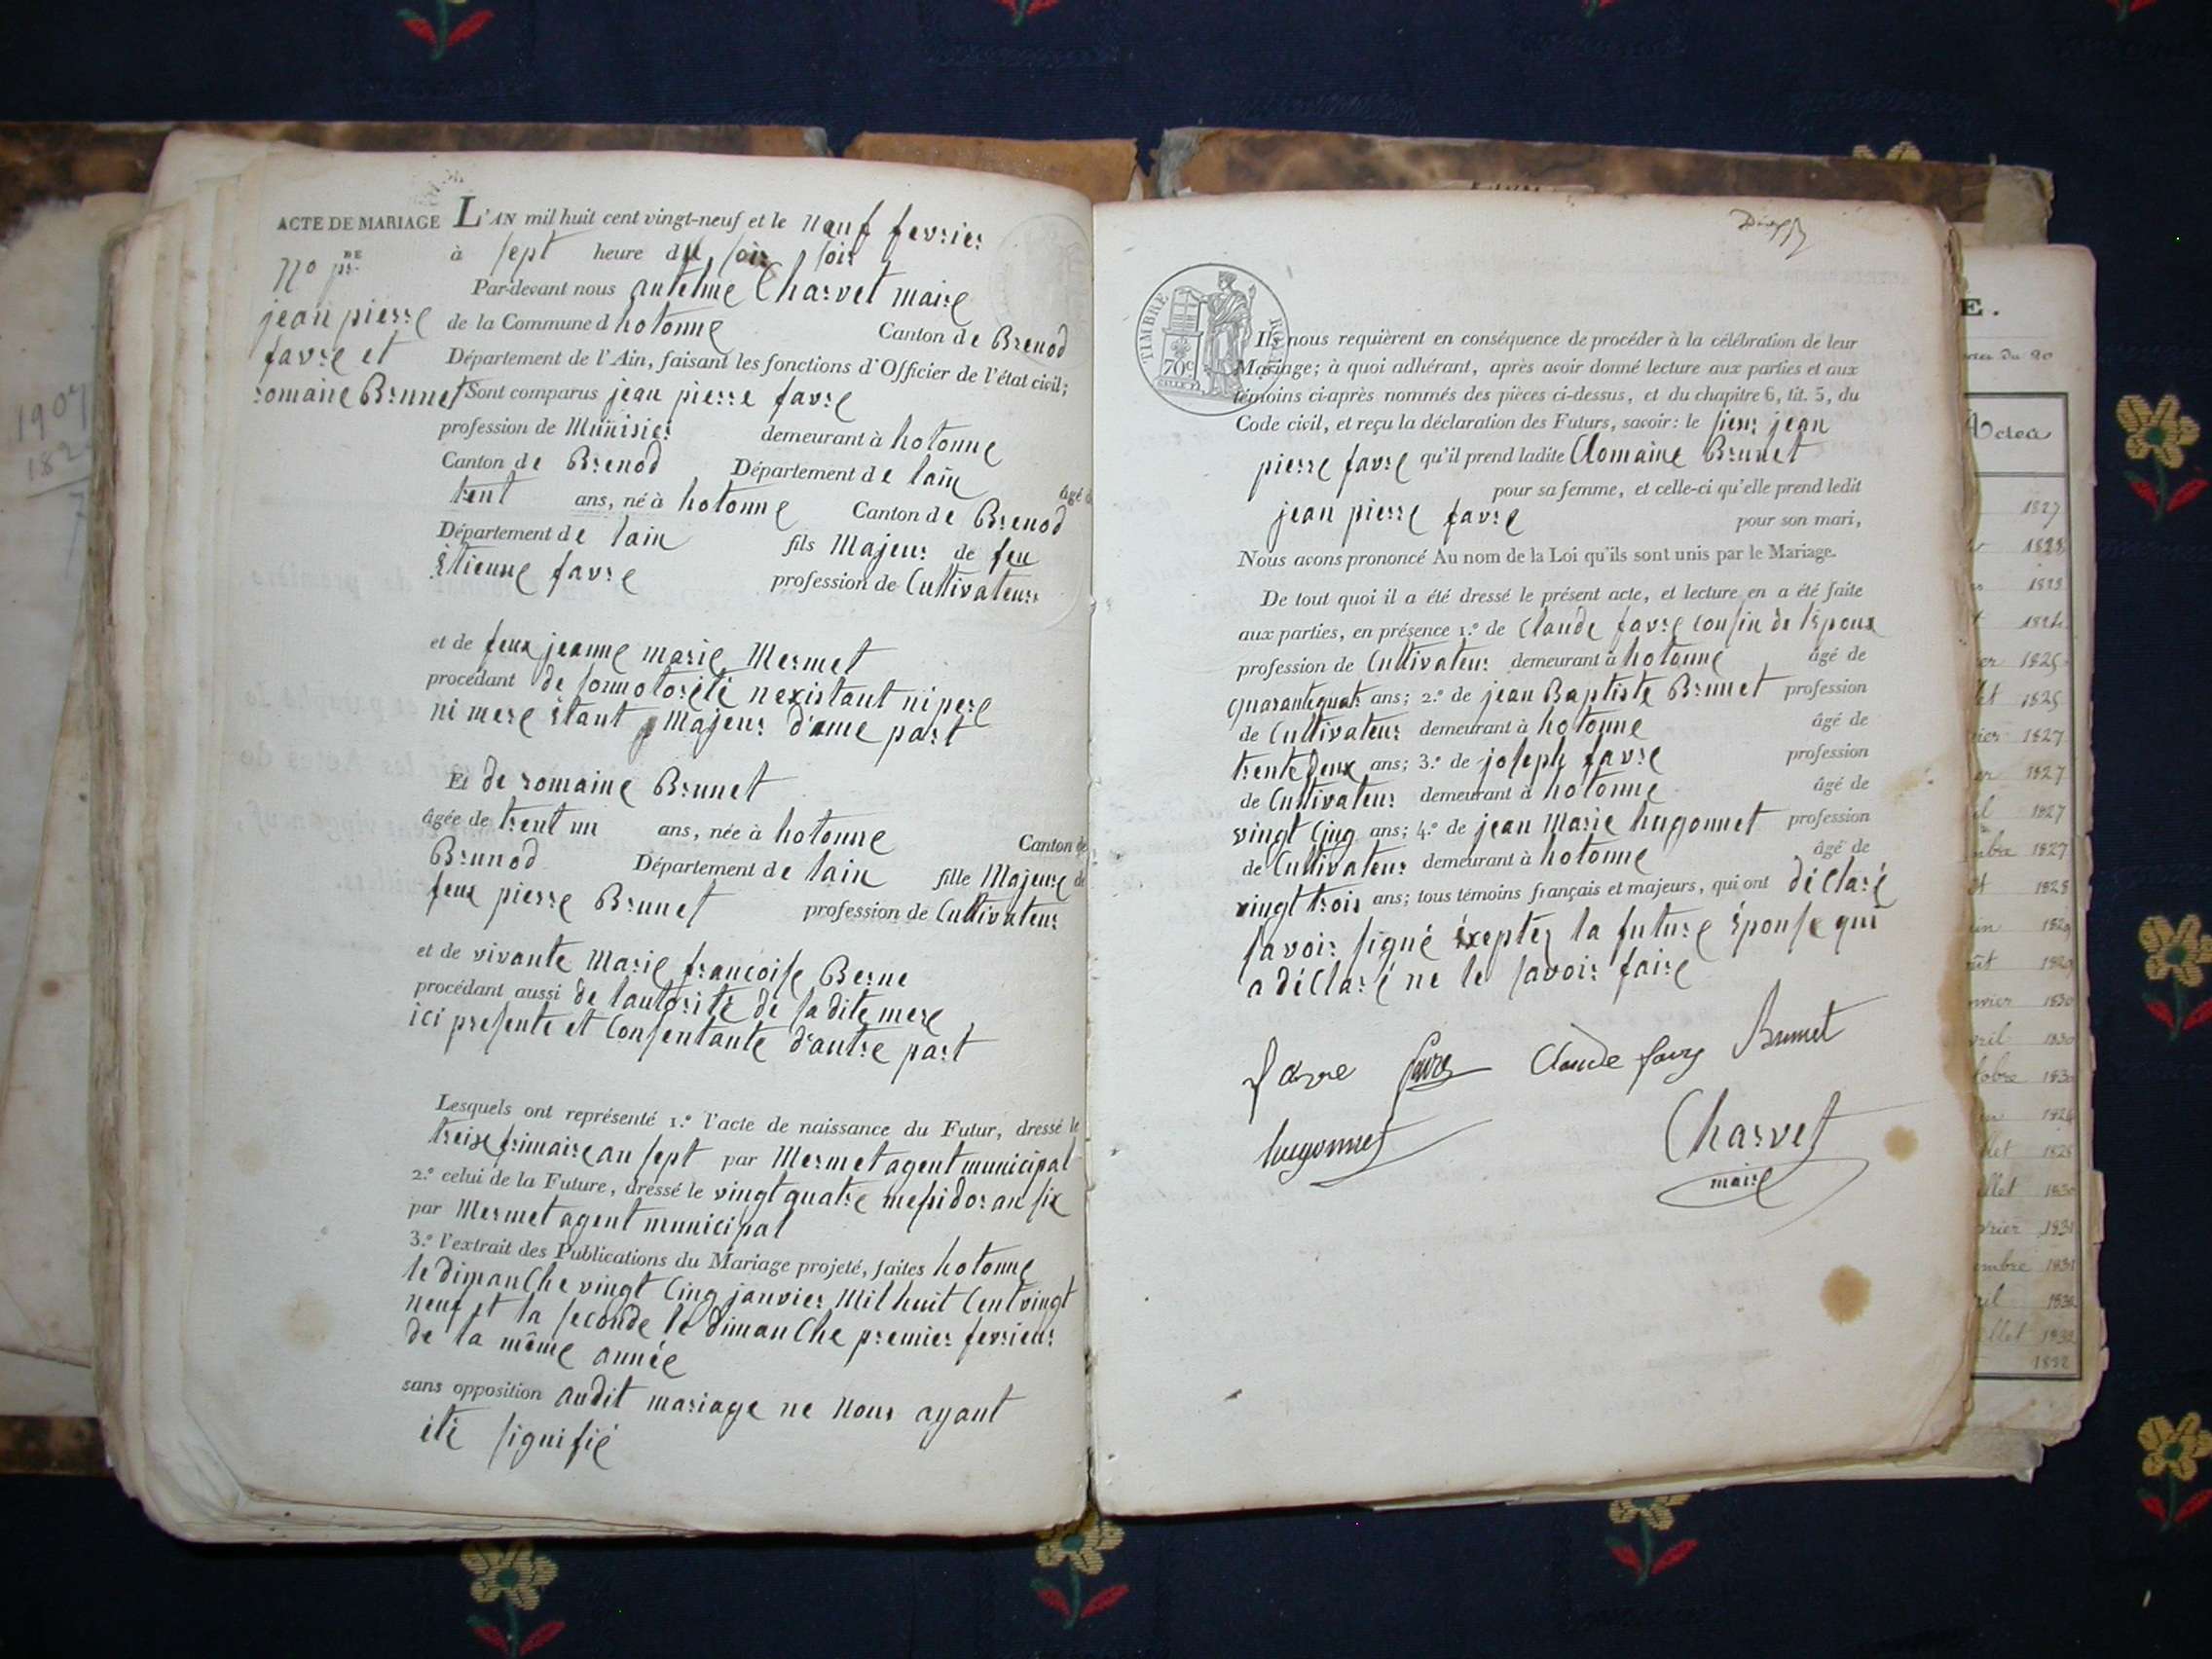 ACTE DE MARIAGE
N.o p.RE
jean pierre
favre et
romaine Brunet
L'AN mil huit cent vingt-neuf et le neuf fevrier
à sept heure du soir soir
Par-devant nous antelme Charvet maire
de la Commune d hotonne Canton de Brenod
Département de l'Ain, faisant les fonctions d'Officier de l'état civil;
Sont comparus jean pierre favre
profession de Munisier demeurant à hotonne
Canton de Brenod Département de lain âgé d
trent ans, né à hotonne Canton de Brenod
Département de lain fils Majeur de feu
étienne favre profession de Cultivateur
et de feux jeanne marie Mermet
procédant de sonnotorété nexistant ni pere
ni mere étant Majeur d'une part
Et de romaine Brunet
âgée de trent un ans, née à hotonne Canton de
Brunod Département de lain fille Majeure de
feux pierre Brunet profession de Cultivateur
et de vivante Marie francoise Berne
procédant aussi de lautorité de sa dite mere
ici presente et Consentante d'autre part
Lesquels ont représenté 1.º l'acte de naissance du Futur, dressé le
treise frimaire an sept par Mermet agent municipal
2.º celui de la Future, dressé le vingt quatre mesidor an six
par Mermet agent municipal
3.º l'extrait des Publications du Mariage projeté, faites hotonne
le dimanche vingt Cinq janvier Mil huit Cent vingt
neuf et la seconde le dimanche premier fevrier
de la même année
sans opposition audit mariage ne nous ayant
été signifié
TIMBRE ROYAL
70c
Ils nous requièrent en conséquence de procéder à la célébration de leur
Mariage; à quoi adhérant, après avoir donné lecture aux parties et aux
témoins ci-après nommés des pièces ci-dessus, et du chapitre 6, tit. 5, du
Code civil, et reçu la déclaration des Futurs, savoir: le sieur jean
pierre favre qu'il prend ladite Romaine Brunet
pour sa femme, et celle-ci qu'elle prend ledit
jean pierre favre pour son mari,
Nous avons prononcé Au nom de la Loi qu'ils sont unis par le Mariage.
De tout quoi il a été dressé le présent acte, et lecture en a été faite
aux parties, en présence 1.º de Claude favre cousin de lépoux
profession de Cultivateur demeurant à hotonne âgé de
quarantequatr ans; 2.º de jean Baptiste Brunet profession
de Cultivateur demeurant à hotonne âgé de
trente deux ans; 3.º de joseph favre profession
de Cultivateur demeurant à hotonne âgé de
vingt Cinq ans; 4.º de jean Marie hugonnet profession
de Cultivateur demeurant à hotonne âgé de
vingt trois ans; tous témoins français et majeurs, qui ont déclaré
savoir signé éxeptez la future épouse qui
a déclaré ne le savoir faire
favre favre Claude favre Brunet
hugonnet Charvet
maire
E.
1827
1828
1825
1825
1827
1827
1827
1827
1828
1829
1829
1830
1830
1830